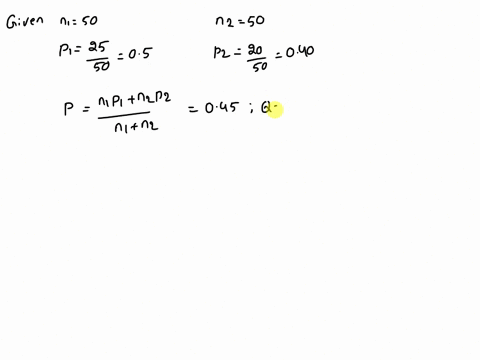 Given n1 = 50 n2 = 50
P1 = 25/50 = 0.5 P2 = 20/50 = 0.40
P = n1P1 + n2P2 / n1 + n2 = 0.45 ; Q